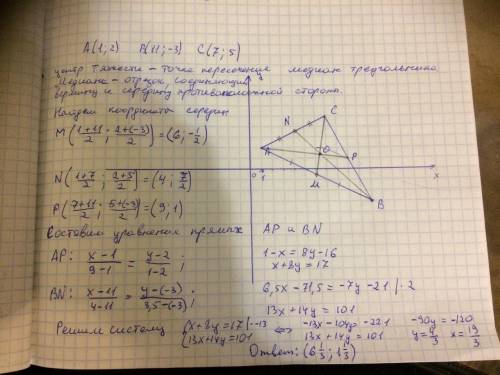 A(1;2) B(11;-3) C(7;5)
центр тяжести - точка пересечения медиан треугольника
Медиана - отрезок, соединяющий
вершину и середину противоположной стороны.
Найдем координаты середин
M(1+11/2; 2+(-3)/2) = (6; -1/2)
N(1+7/2; 2+5/2) = (4; 7/2)
P(7+11/2; 5+(-3)/2) = (9; 1)
C
N
A
O
P
0 1
x
M
B
Составим уравнения прямых AP и BN
AP: x-1/9-1 = y-2/1-2;
1-x = 8y-16
x+8y=17
BN: x-11/4-11 = y-(-3)/3,5-(-3);
6,5x-71,5 = -7y-21 |·2
13x+14y=101
Решим систему { x+8y=17 |·-13 ⇔ -13x-104y=-221 -90y=-120
13x+14y=101 13x+14y=101 y=4/3 x=19/3
Ответ: (6 1/3; 1 1/3)